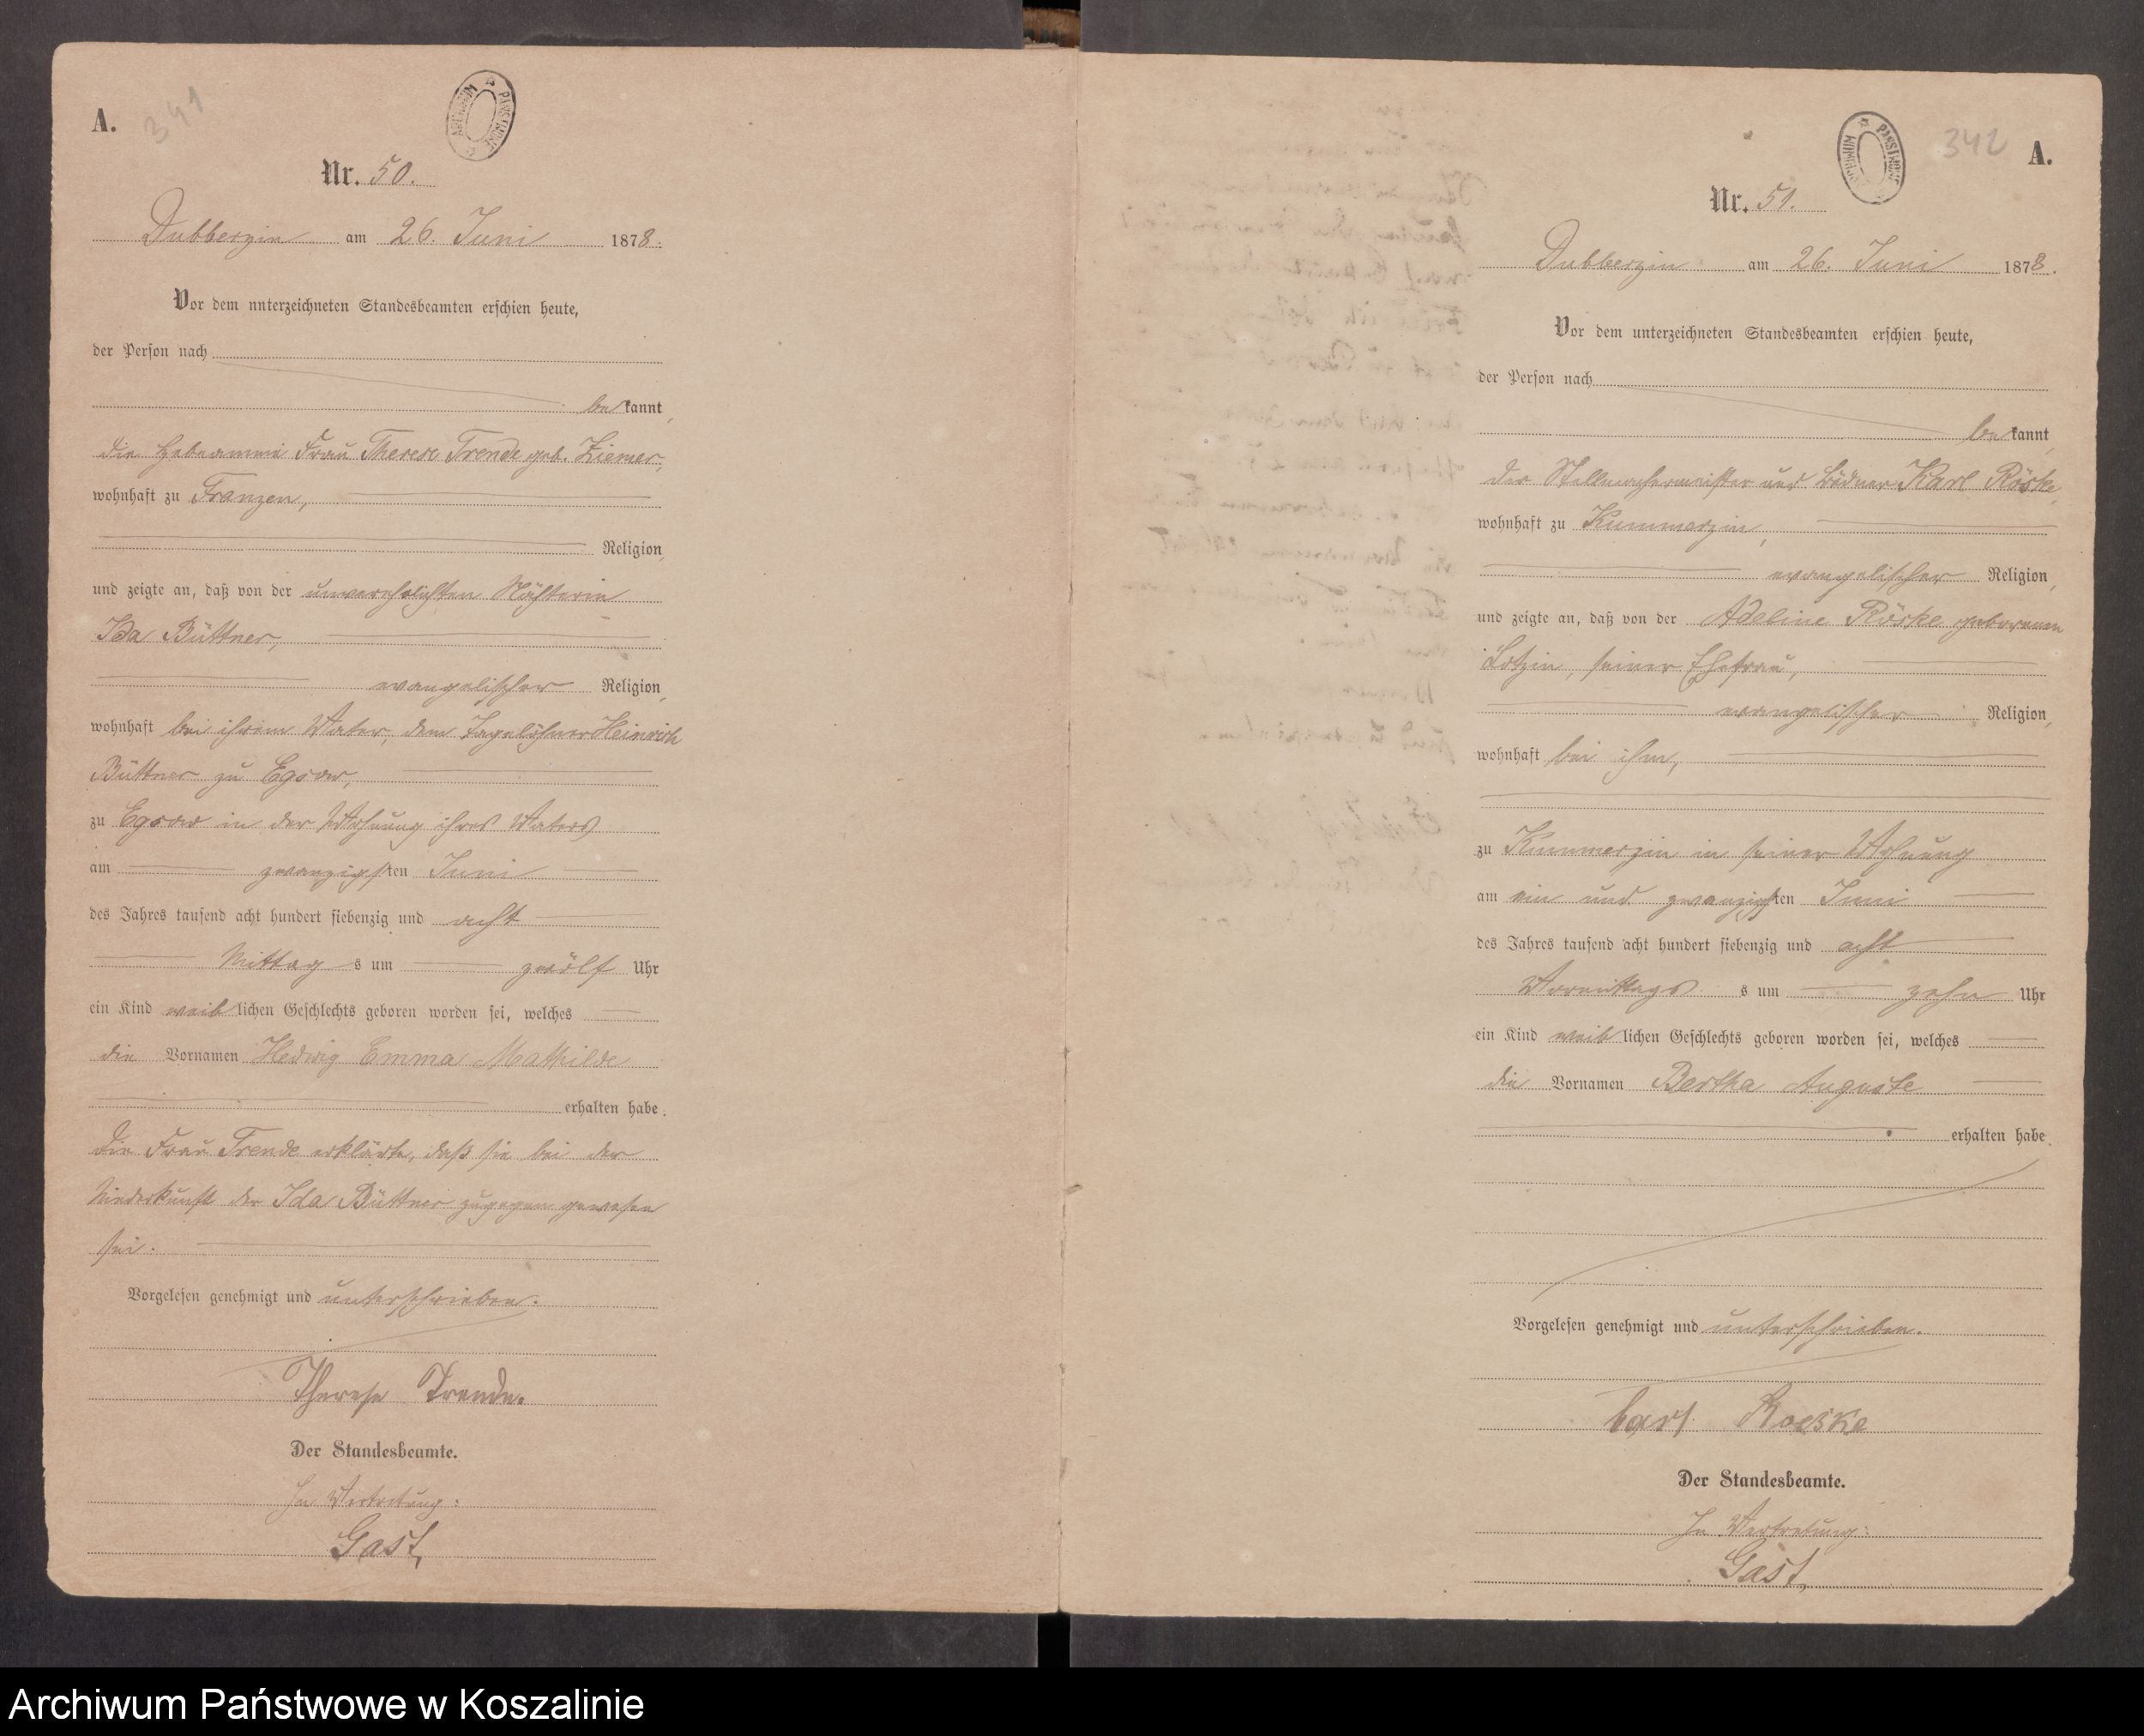 A.
341
ARCHIWUM PAŃSTWOWE
Nr. 50.
Dubberzin am 26. Juni 1878.
Vor dem unterzeichneten Standesbeamten erschien heute,
der Person nach
bekannt,
die Hebeamme Frau Therese Trende geb. Ziemer,
wohnhaft zu Franzen,
Religion,
und zeigte an, daß von der unverehelichten Nähterin
Ida Büttner,
evangelischer Religion,
wohnhaft bei ihrem Vater, dem Tagelöhner Heinrich
Büttner zu Egsow,
zu Egsow in der Wohnung ihres Vaters
am zwanzigsten Juni
des Jahres tausend acht hundert siebenzig und acht
Mittag s um zwölf Uhr
ein Kind weiblichen Geschlechts geboren worden sei, welches
die Vornamen Hedwig Emma Mathilde
erhalten habe.
Die Frau Trende erklärte, daß sie bei der
Niederkunft der Ida Büttner zugegen gewesen
sei.
Vorgelesen genehmigt und unterschrieben.
Therese Trende.
Der Standesbeamte.
In Vertretung:
Gast,
ARCHIWUM PAŃSTWOWE
342
A.
Nr. 51.
Dubberzin am 26. Juni 1878.
Vor dem unterzeichneten Standesbeamten erschien heute,
der Person nach
bekannt,
der Stellmachermeister und Büdner Karl Röske,
wohnhaft zu Kummerzin,
evangelischer Religion,
und zeigte an, daß von der Adeline Röske geborenen
Lotzin, seiner Ehefrau,
evangelischer Religion,
wohnhaft bei ihm,
zu Kummerzin in seiner Wohnung
am ein und zwanzigsten Juni
des Jahres tausend acht hundert siebenzig und acht
Vormittags s um zehn Uhr
ein Kind weiblichen Geschlechts geboren worden sei, welches
die Vornamen Bertha Auguste
erhalten habe.
Vorgelesen genehmigt und unterschrieben.
Carl Roeske
Der Standesbeamte.
In Vertretung:
Gast,
Archiwum Państwowe w Koszalinie